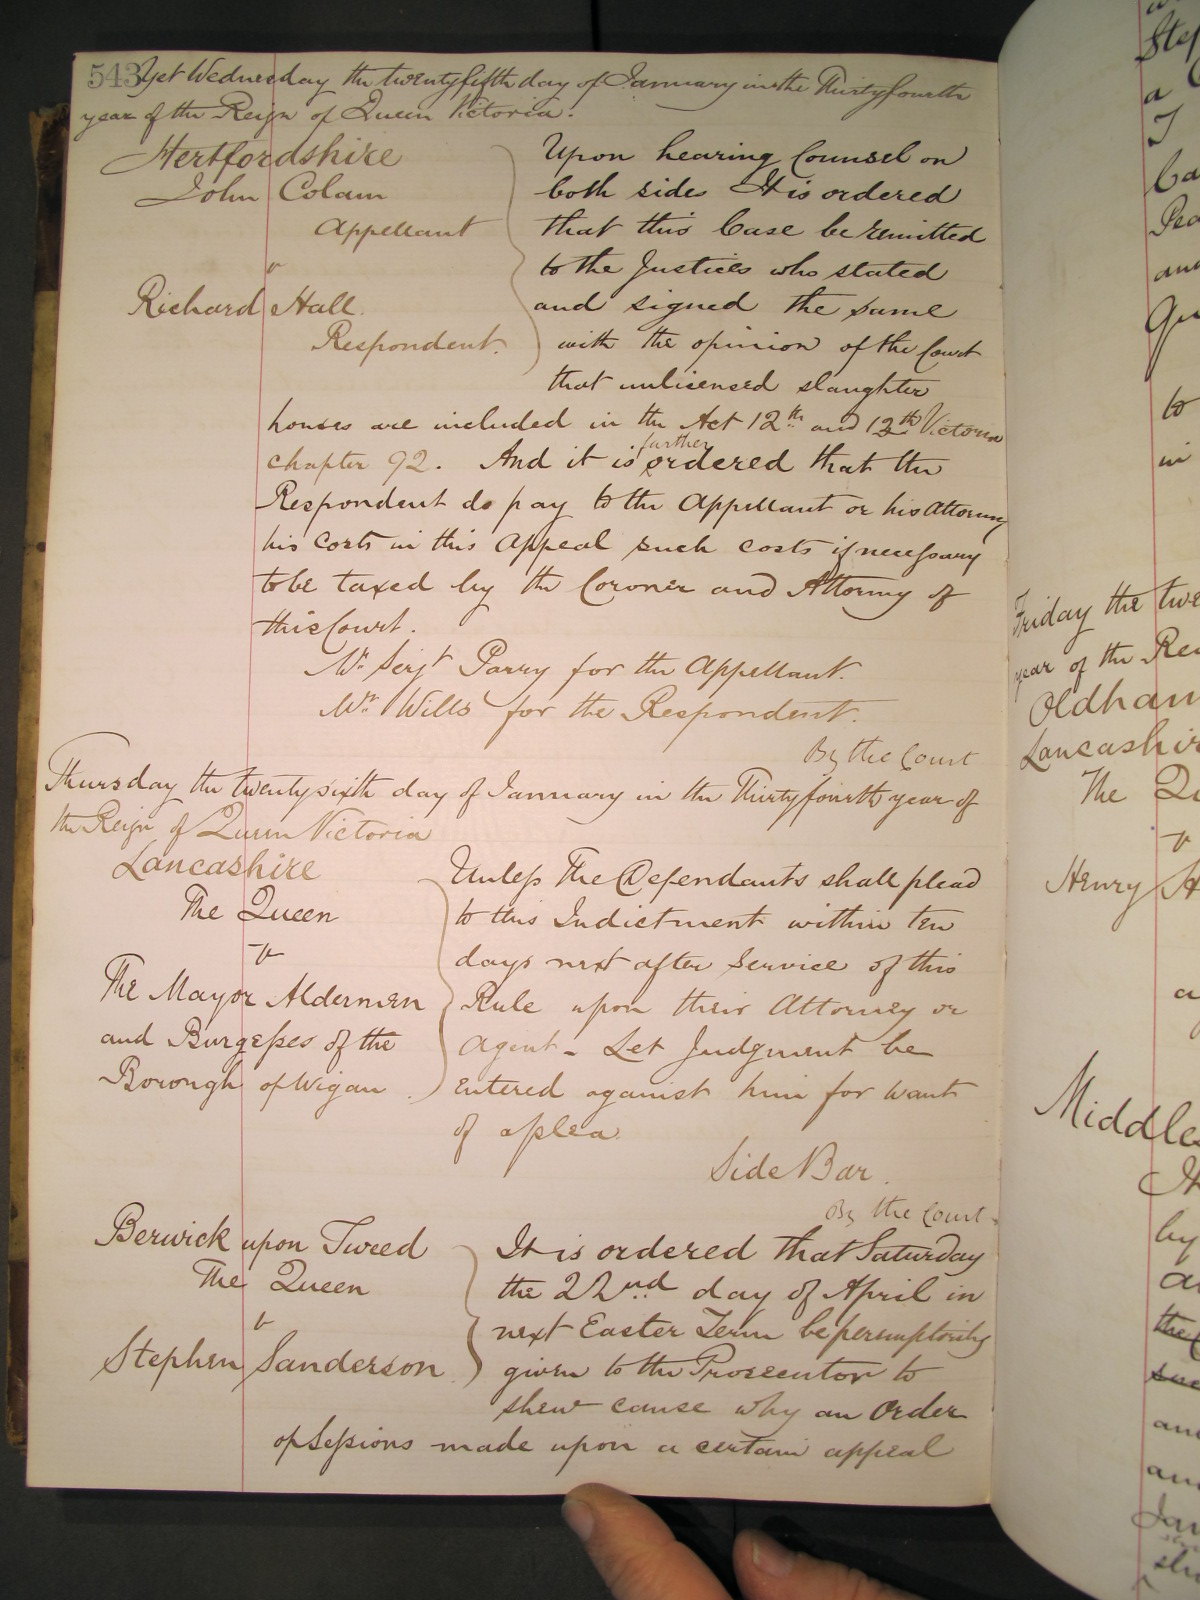 543 Yet Wednesday the twentyfifth day of January in the Thirtyfourth
year of the Reign of Queen Victoria.
Hertfordshire
John Colam
Appellant
v
Richard Hall
Respondent.
Upon hearing Counsel on
both sides It is ordered
that this Case be remitted
to the Justices who stated
and signed the same
with the opinion of the Court
that unlicensed slaughter
houses are included in the Act 12th and 13th Victoria
chapter 92. And it is further ordered that the
Respondent do pay to the Appellant or his Attorney
his costs in this Appeal such costs if necessary
to be taxed by the Coroner and Attorney of
this Court.
Mr. Serjt Parry for the Appellant.
Mr. Wills for the Respondent.
By the Court
Thursday the twentysixth day of January in the Thirtyfourth year of
the Reign of Queen Victoria
Lancashire
The Queen
v
The Mayor Aldermen
and Burgesses of the
Borough of Wigan
Unless The Defendants shall plead
to this Indictment within ten
days next after Service of this
Rule upon their Attorney or
Agent - Let Judgment be
entered against him for want
of a plea
Side Bar.
By the Court
Berwick upon Tweed
The Queen
v
Stephen Sanderson
It is ordered that Saturday
the 22nd day of April in
next Easter Term be peremptorily
given to the Prosecutor to
shew cause why an Order
of Sessions made upon a certain appeal
Friday the
year of the
Oldham
Lancashire
The
v
Henry